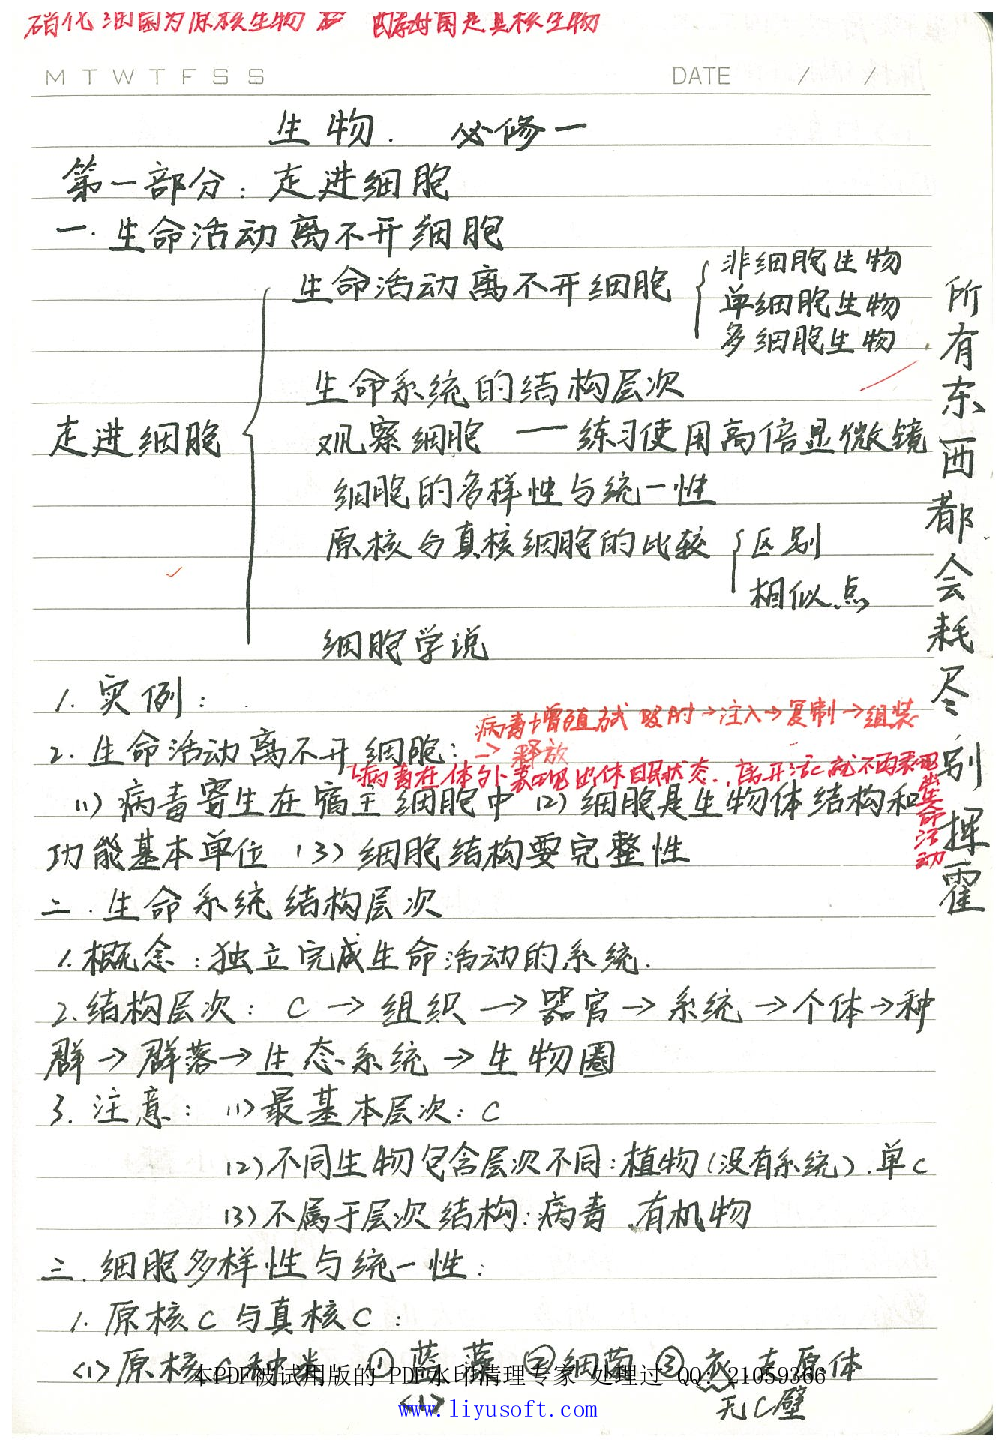 硝化细菌为原核生物 酵母菌是真核生物
M T W T F S S DATE / /
生物. 必修一
第一部分: 走进细胞
一. 生命活动离不开细胞
生命活动离不开细胞 { 非细胞生物
单细胞生物
多细胞生物
生命系统的结构层次
走进细胞 { 观察细胞 — 练习使用高倍显微镜
细胞的多样性与统一性
原核与真核细胞的比较 { 区别
相似点
细胞学说
1. 实例:
病毒增殖方式 吸附→注入→复制→组装
→释放
2. 生命活动离不开细胞:
病毒在体外表现出休眠状态. 离开活C就不再表现
生命活动
(1) 病毒寄生在宿主细胞中 (2) 细胞是生物体结构和
功能基本单位 (3) 细胞结构要完整性
二. 生命系统结构层次
1. 概念: 独立完成生命活动的系统.
2. 结构层次: C → 组织 → 器官 → 系统 → 个体 → 种
群 → 群落 → 生态系统 → 生物圈
3. 注意: (1) 最基本层次: C
(2) 不同生物包含层次不同: 植物(没有系统). 单C
(3) 不属于层次结构: 病毒. 有机物
三. 细胞多样性与统一性:
1. 原核C与真核C:
(1) 原核C种类 ① 蓝藻 ② 细菌 ③ 支原体
本PDF被试用版的 PDF水印清理专家 处理过 QQ: 21059366
<1>
www.liyusoft.com
无C壁
所有东西都会耗尽 别挥霍